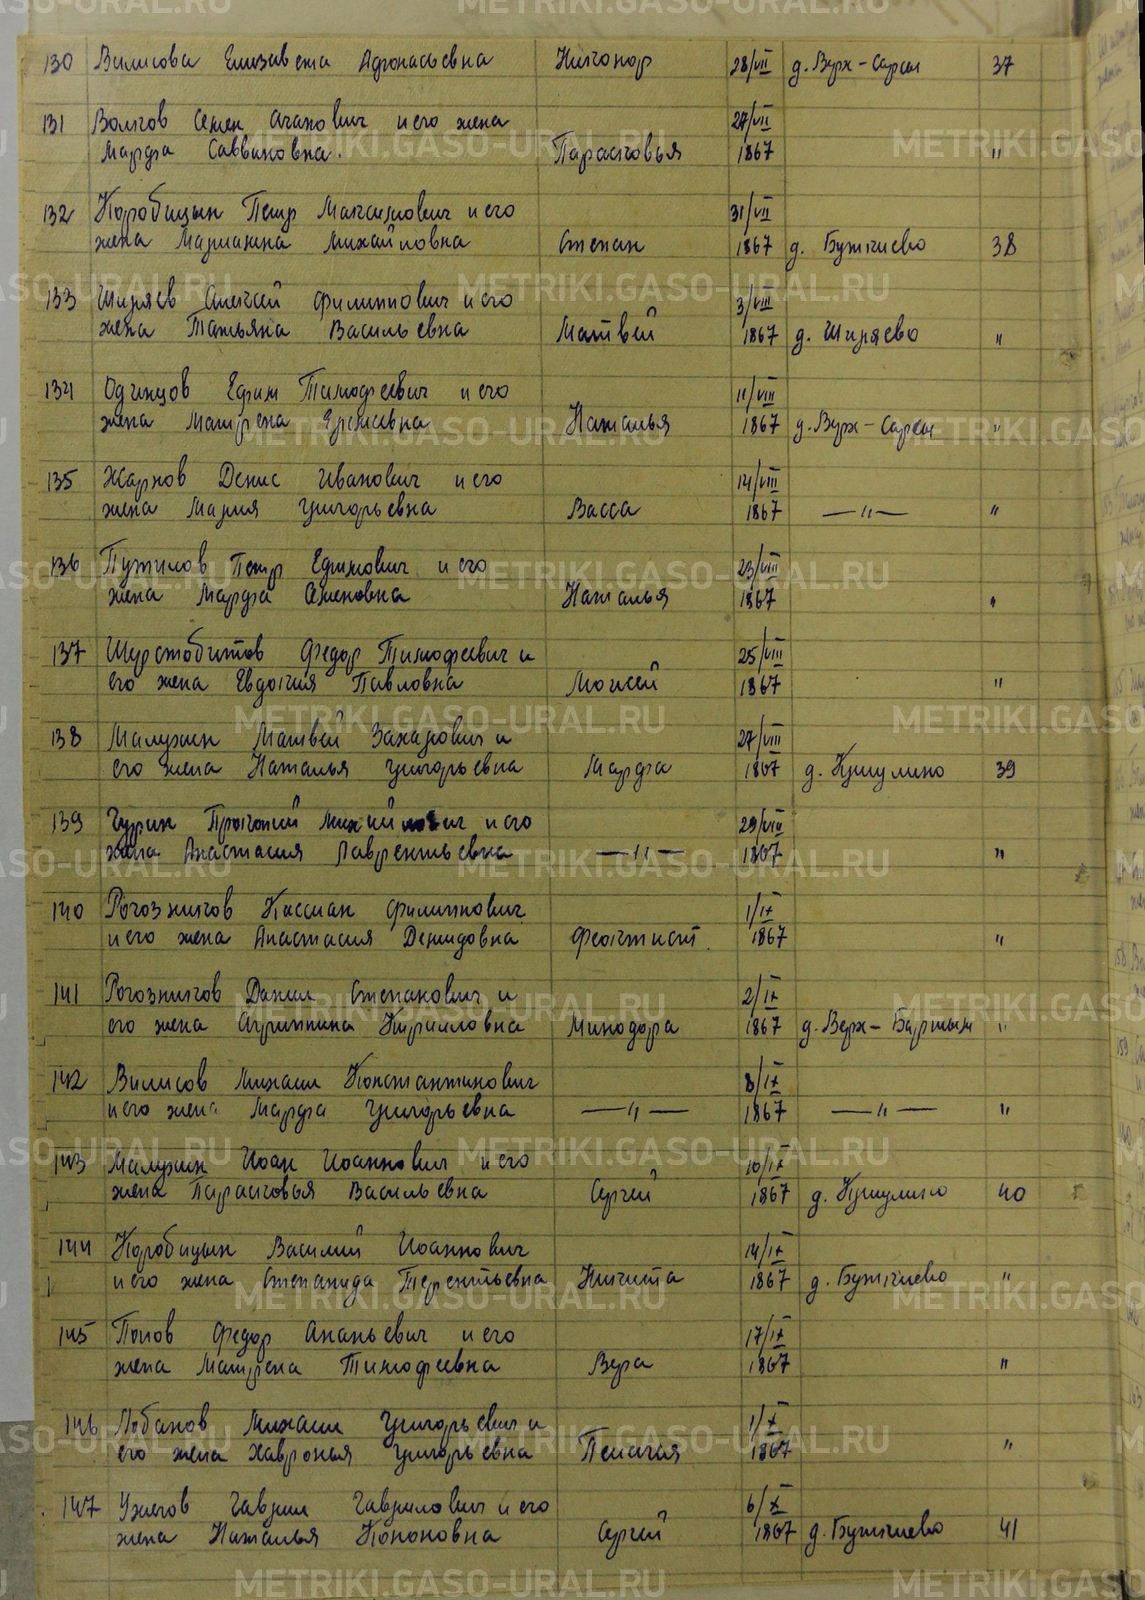 130 Вилисова Елизавета Афонасьевна Никонор 28/VII д. Верх-Сарсы 37
131 Волков Семен Агапович и его жена 27/VII
Марфа Саввиновна. Парасковья 1867 "
132 Коробицын Петр Максимович и его 31/VII
жена Марианна Михайловна Степан 1867 д. Буткиево 38
133 Ширяев Алексей Филиппович и его 3/VIII
жена Татьяна Васильевна Матвей 1867 д. Ширяево "
134 Одинцов Ефим Тимофеевич и его 11/VIII
жена Матрена Ефимовна Наталья 1867 д. Верх-Сарсы "
135 Жарков Денис Иванович и его 14/VIII
жена Мария Григорьевна Васса 1867 —"— "
136 Путилов Петр Ефимович и его 23/VIII
жена Марфа Семеновна Наталья 1867 "
137 Шерстобитов Федор Тимофеевич и 25/VIII
его жена Евдокия Павловна Моисей 1867 "
138 Малухин Матвей Захарович и 27/VIII
его жена Наталья Григорьевна Марфа 1867 д. Криулино 39
139 Чурин Прокопий Михайлович и его 29/VIII
жена Анастасия Лаврентьевна —"— 1867 "
140 Рогозников Кассиан Филиппович 1/IX
и его жена Анастасия Демидовна Феоктист. 1867 "
141 Рогозников Данил Степанович и 2/IX
его жена Агрипина Кирилловна Минодора 1867 д. Верх-Бартым "
142 Вилисов Михаил Константинович 8/IX
и его жена Марфа Григорьевна —"— 1867 —"— "
143 Малухин Иоан Иоаннович и его 10/IX
жена Парасковья Васильевна Сергей 1867 д. Криулино 40
144 Коробицын Василий Иоаннович 14/IX
и его жена Степанида Терентьевна Никита 1867 д. Буткиево "
145 Попов Федор Ананьевич и его 17/IX
жена Матрена Тимофеевна Вера 1867 "
146 Лобанов Михаил Григорьевич и 1/X
его жена Хавронья Григорьевна Пелагия 1867 "
147 Ужегов Гаврил Гаврилович и его 6/X
жена Наталья Кононовна Сергей 1867 д. Буткиево 41
METRIKI.GASO-URAL.RU